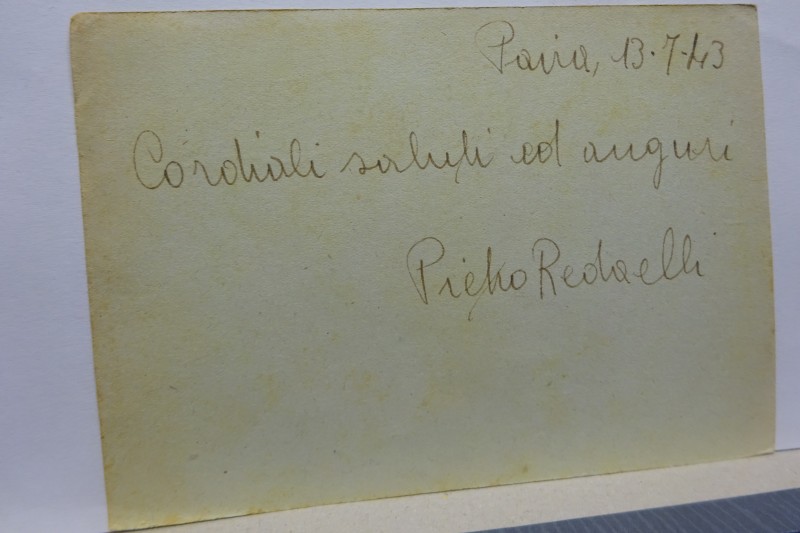 Pavia, 13·7·43
Cordiali saluti ed auguri
Pietro Redaelli